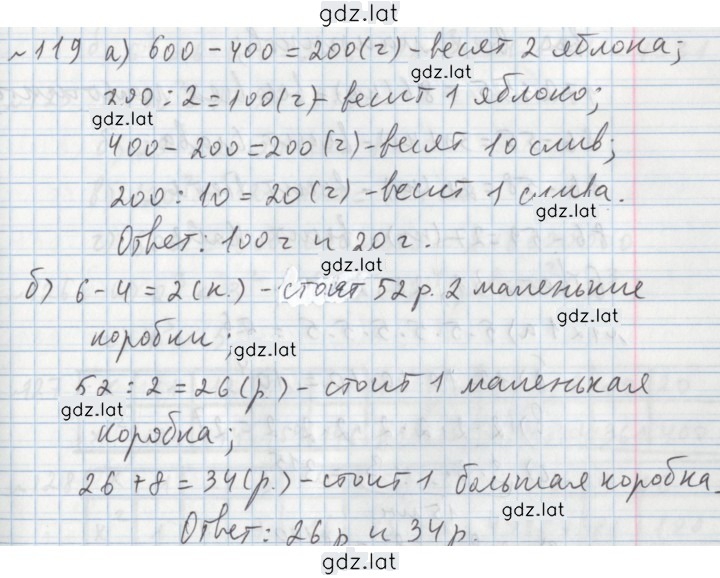 gdz.lat
№119 а) 600 - 400 = 200 (г) - весят 2 яблока;
gdz.lat
200 : 2 = 100 (г) - весит 1 яблоко;
gdz.lat
400 - 200 = 200 (г) - весят 10 слив;
200 : 10 = 20 (г) - весит 1 слива.
gdz.lat
Ответ: 100 г и 20 г.
gdz.lat
б) 6 - 4 = 2 (к.) - стоят 52 р. 2 маленькие
gdz.lat
коробки;
gdz.lat
52 : 2 = 26 (р.) - стоит 1 маленькая
gdz.lat
коробка;
26 + 8 = 34 (р.) - стоит 1 большая коробка.
gdz.lat
Ответ: 26 р и 34 р.
gdz.lat